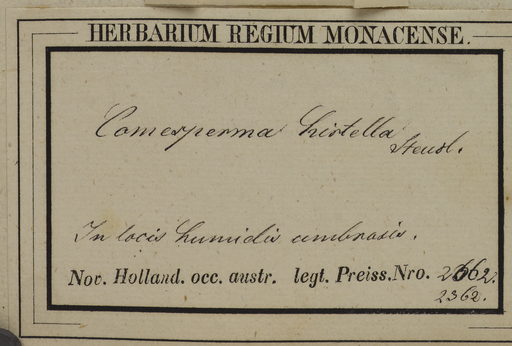 HERBARIUM REGIUM MONACENSE.
Comesperma hirtella
Steud.
In locis humidis umbrosis.
Nov. Holland. occ. austr. legt. Preiss. Nro. 2662.
2362.